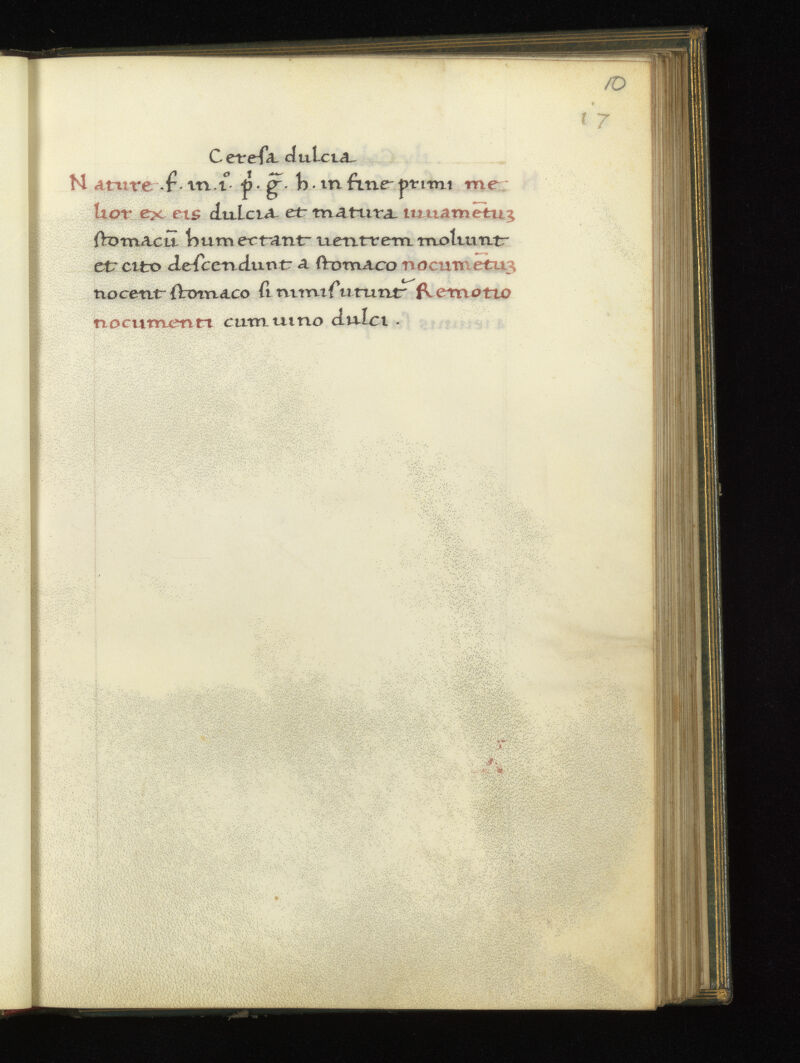 10
17
Cereſa dulcia
Nature .f. in .i°. p̍. g̅r̅. h. in fine primi me-
lior ex eis dulcia et matura iuuamētuꝫ
ſtomacū humectant uentrem moliunt
et cito deſcendunt a ſtomaco nocumētuꝫ
nocent ſtomaco ſi nimiſ utunt᷑ Remotio
nocumenti cum uino dulci .